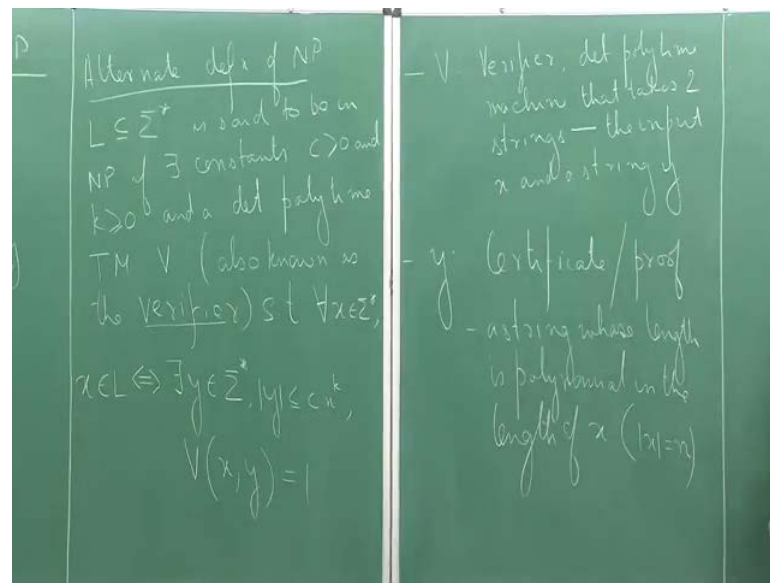 P
Alternate defn of NP
L ⊆ Σ* is said to be in
NP if ∃ constants c>0 and
k≥0 and a det polytime
TM V (also known as
the verifier) s t ∀x∈Σ*,
x∈L ⇔ ∃y∈Σ*, |y| ≤ cn^k,
V(x,y) = 1
- V: Verifier, det polytime
machine that takes 2
strings — the input
x and a string y
- y: Certificate/proof
- a string whose length
is polynomial in the
length of x (|x|=n)